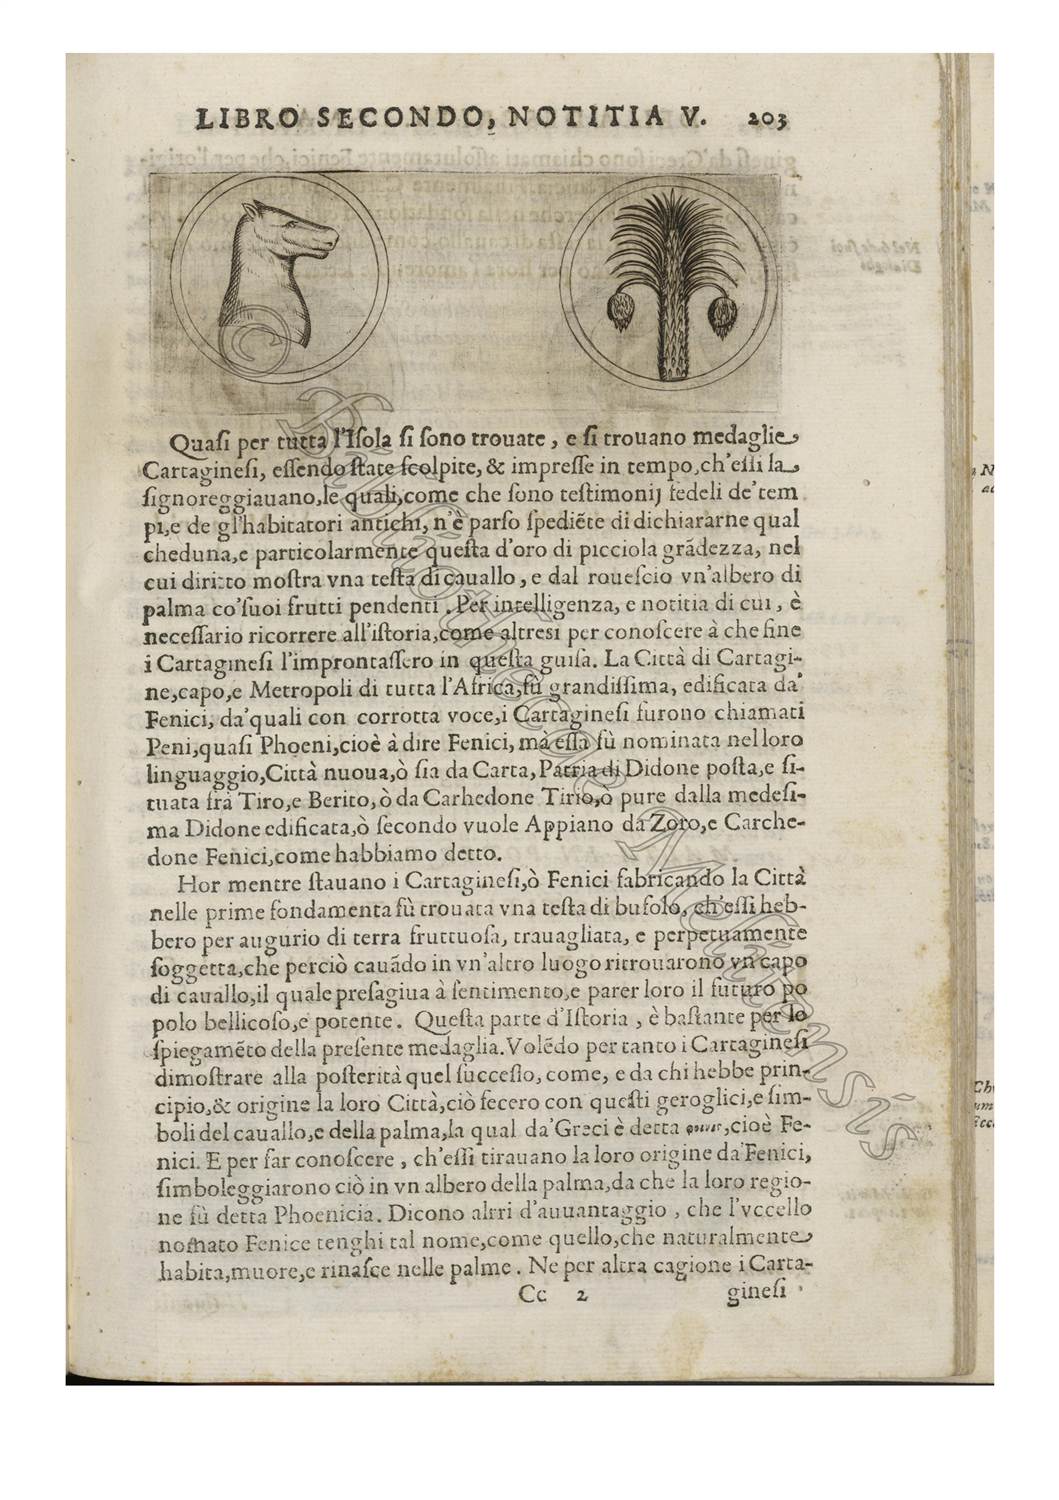 LIBRO SECONDO, NOTITIA V. 203
Quaſi per tutta l'Iſola ſi ſono trouate, e ſi trouano medaglie
Cartagineſi, eſſendo ſtate ſcolpite, & impreſſe in tempo, ch'eſſi la
ſignoreggiauano, le quali, come che ſono teſtimonij fedeli de' tem
pi, e de gl'habitatori antichi, n'è parſo ſpediẽte di dichiararne qual
cheduna, e particolarmente queſta d'oro di picciola grãdezza, nel
cui diritto moſtra vna teſta di cauallo, e dal roueſcio vn'albero di
palma co'ſuoi frutti pendenti. Per intelligenza, e notitia di cui, è
neceſſario ricorrere all'iſtoria, come altresi per conoſcere à che fine
i Cartagineſi l'improntaſſero in queſta guiſa. La Città di Cartagi-
ne, capo, e Metropoli di tutta l'Africa, fù grandiſſima, edificata da'
Fenici, da'quali con corrotta voce, i Cartagineſi furono chiamati
Peni, quaſi Phoeni, cioè à dire Fenici, mà eſſa fù nominata nel loro
linguaggio, Città nuoua, ò ſia da Carta, Patria di Didone poſta, e ſi-
tuata frà Tiro, e Berito, ò da Carhedone Tirio, ò pure dalla medeſi-
ma Didone edificata, ò ſecondo vuole Appiano da Zoro, e Carche-
done Fenici, come habbiamo detto.
Hor mentre ſtauano i Cartagineſi, ò Fenici fabricando la Città
nelle prime fondamenta fù trouata vna teſta di bufolo, ch'eſſi heb-
bero per augurio di terra fruttuoſa, trauagliata, e perpetuamente
ſoggetta, che perciò cauãdo in vn'altro luogo ritrouarono vn capo
di cauallo, il quale preſagiua à ſentimento, e parer loro il futuro po
polo bellicoſo, e potente. Queſta parte d'Iſtoria, è baſtante per lo
ſpiegamẽto della preſente medaglia. Volẽdo per tanto i Cartagineſi
dimoſtrare alla poſterità quel ſucceſſo, come, e da chi hebbe prin-
cipio, & origine la loro Città, ciò fecero con queſti geroglici, e ſim-
boli del cauallo, e della palma, la qual da'Greci è detta , cioè Fe-
nici. E per far conoſcere, ch'eſſi tirauano la loro origine da'Fenici,
ſimboleggiarono ciò in vn albero della palma, da che la loro regio-
ne fù detta Phoenicia. Dicono altri d'auuantaggio, che l'vccello
nomato Fenice tenghi tal nome, come quello, che naturalmente
habita, muore, e rinaſce nelle palme. Ne per altra cagione i Carta-
Cc 2 gineſi